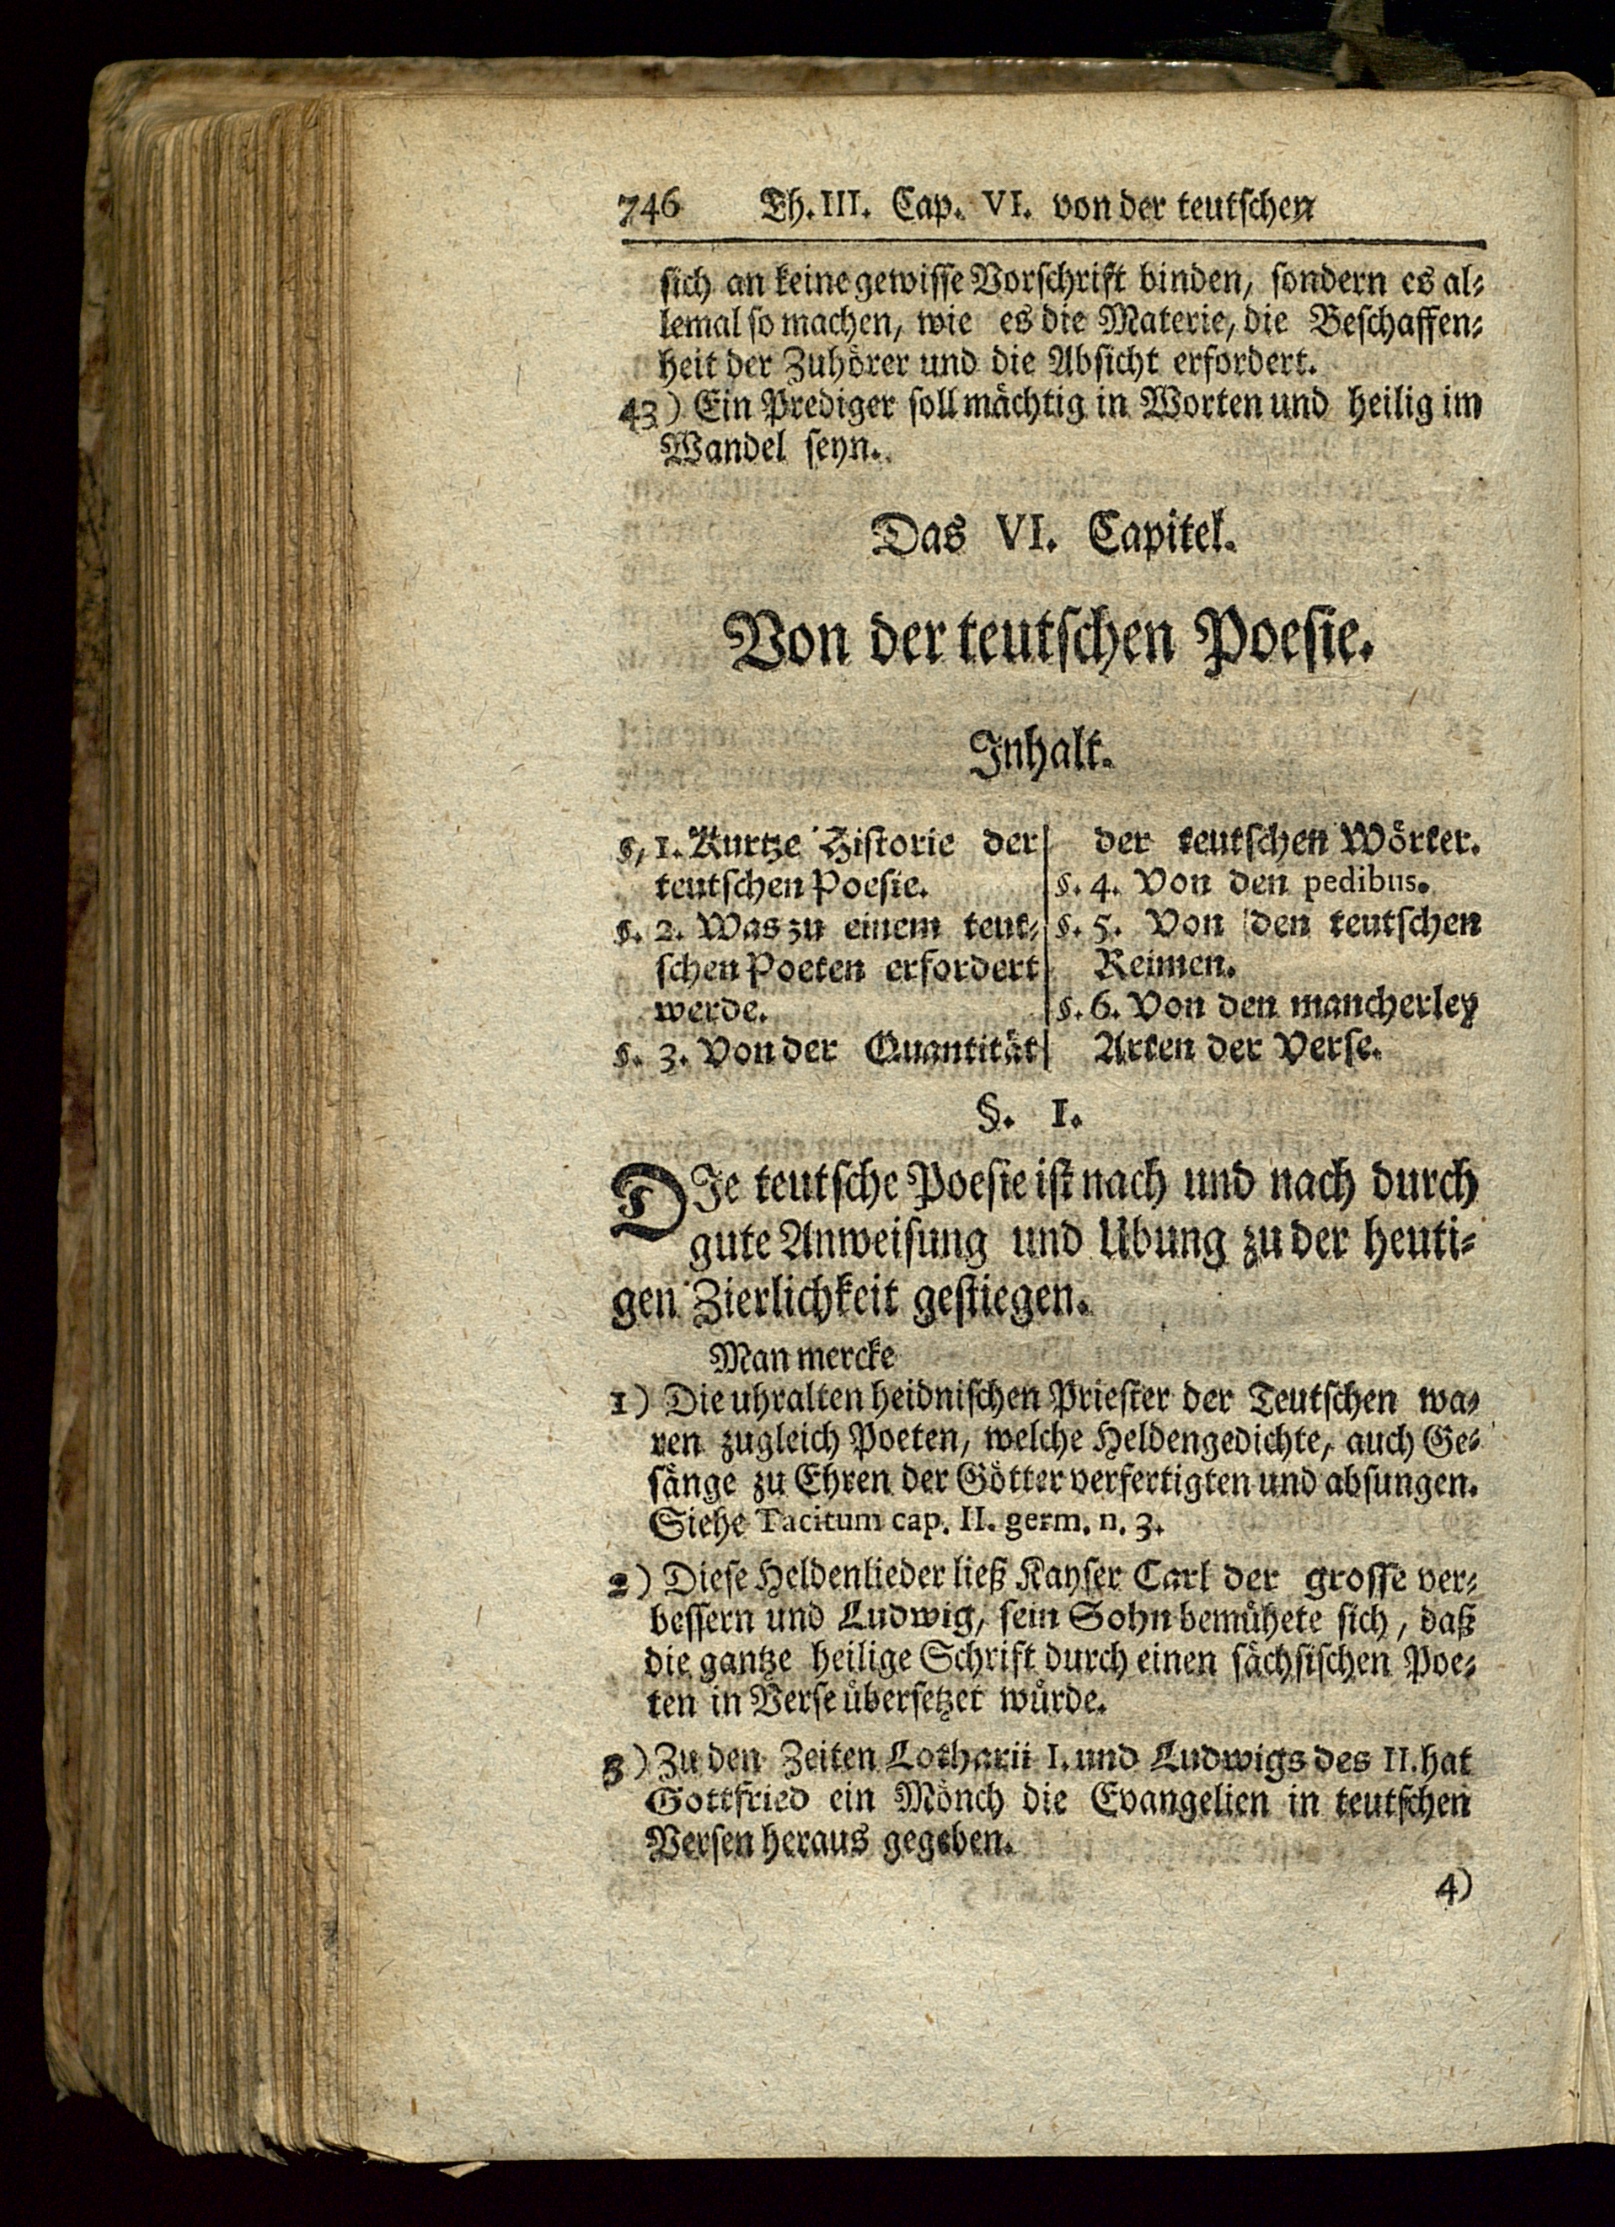 746 Th. III. Cap. VI. von der teutschen
sich an keine gewisse Vorschrift binden, sondern es al-
lemal so machen, wie es die Materie, die Beschaffen-
heit der Zuhörer und die Absicht erfordert.
43) Ein Prediger soll mächtig in Worten und heilig im
Wandel seyn.
Das VI. Capitel.
Von der teutschen Poesie.
Inhalt.
§. 1. Kurtze Historie der
teutschen Poesie.
§. 2. Was zu einem teut-
schen Poeten erfordert
werde.
§. 3. Von der Quantität
der teutschen Wörter.
§. 4. Von den pedibus.
§. 5. Von den teutschen
Reimen.
§. 6. Von den mancherley
Arten der Verse.
§. 1.
DIe teutsche Poesie ist nach und nach durch
gute Anweisung und Übung zu der heuti-
gen Zierlichkeit gestiegen.
Man mercke
1) Die uhralten heidnischen Priester der Teutschen wa-
ren zugleich Poeten, welche Heldengedichte, auch Ge-
sänge zu Ehren der Götter verfertigten und absungen.
Siehe Tacitum cap. II. germ. n. 3.
2) Diese Heldenlieder ließ Kayser Carl der grosse ver-
bessern und Ludwig, sein Sohn bemühete sich, daß
die gantze heilige Schrift durch einen sächsischen Poe-
ten in Verse übersetzet würde.
3) Zu den Zeiten Lotharii I. und Ludwigs des II. hat
Gottfried ein Mönch die Evangelien in teutschen
Versen heraus gegeben.
4)